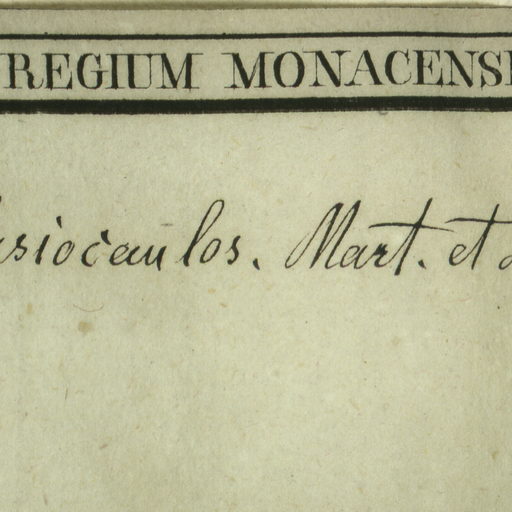 REGIUM MONACENS
siocaulos. Mart. et